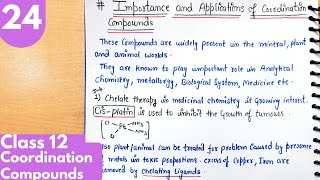 24
# Importance and Applications of Coordination
Compounds
These Compounds are widely present in the mineral, plant
and animal worlds.
They are known to play important role in Analytical
Chemistry, metallurgy, Biological System, Medicine etc.
1) Chelate therapy in medicinal chemistry is growing interest.
Cis-platin is used to inhibit the Growth of tumours.
Cl Pt NH3
NH3
plant/animal can be treated for problem caused by presence
metals in toxic propositions. excess of Copper, Iron are
removed by Chelating Ligands.
Class 12
Coordination
Compounds